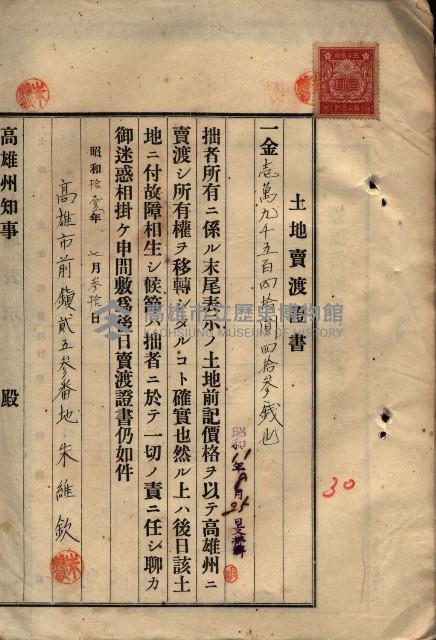 土地賣渡證書
一金壱萬九千五百四拾圓四拾参錢也
拙者所有ニ係ル末尾表示ノ土地前記價格ヲ以テ高雄州ニ
賣渡シ所有權ヲ移轉
コト確實也然ル上ハ後日該土
地ニ付故障相生シ候節
拙者ニ於テ一切ノ責ニ任シ聊カ
御迷惑相掛ケ申間敷爲後日賣渡證書仍如件
昭和拾壹年七月参拾日
高雄市前鎮貳五参番地 朱維欽
高雄州知事 殿
昭和11年
30
高雄市立歷史博物館
KAOHSIUNG MUSEUM OF HISTORY